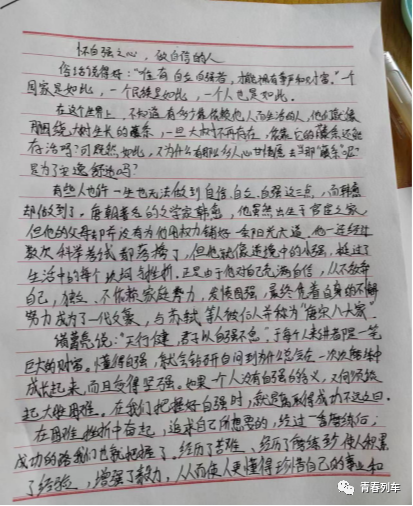 怀自强之心，做自信的人
俗话说得好："唯有自立自强者，才能拥有事业和财富。"一个
国家是如此，一个民族是如此，一个人也是如此。
在这个世界上，不知道有多少靠依赖他人而生活的人，他们就像
围绕大树生长的藤条，一旦大树不再存在，依靠它的藤条还能
存活吗？可既然如此，又为什么有那么多人心甘情愿去当那"藤条"呢？
是为了安逸舒适吗？
有些人也许一生也无法做到自信、自立、自强这三点，而韩愈
却做到了。唐朝著名的文学家韩愈，他虽然出生于官宦之家，
但他的父母却并没有为他用权力铺好一条阳光大道，他一连经过
数次科举考试都落榜了，但他就像逆境中的小强，挺过了
生活中的每个坎坷与挫折。正是由于他对自己充满自信，从不放弃
自己，独立、不依赖家庭势力，发愤图强，最终凭着自身的不懈
努力成为了一代文豪，与苏轼等人被后人并称为"八大家"
说："天行健，君子以自强不息"，于每个人来讲者是一笔
巨大的财富。懂得自强，就会在一次次磨练中
成长起来，而且变得坚强。如果一个人没有自强的含义，又何须谈
起大难困难。在我们把握好自强时，就是离取得成功不远之日。
在困难、挫折中奋起，追求自己所想要的，经过一番磨练后，
成功的路我们也就把握了，经历了苦难、经历了磨练，使人积累
了经验，增强了毅力，从而使人更懂得珍惜自己的事业和
青春列车